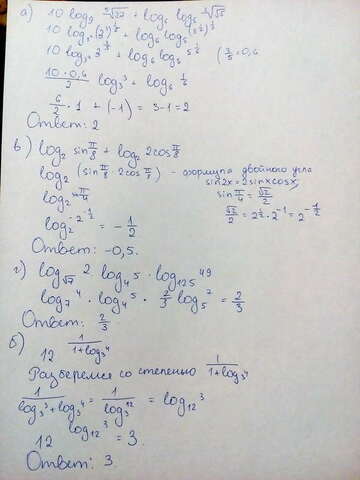 а) 10 log₉ ⁵√27 + log₆ log₅ ⁶√5
10 log₃² (3³)^(1/5) + log₆ log₅ (5^(1/2))^(1/3)
10 log₃² 3^(3/5) + log₆ log₅ 5^(1/6) (3/5 = 0,6
(10 · 0,6)/2 log₃ 3 + log₆ 1/6
6/2 · 1 + (-1) = 3-1 = 2
Ответ: 2
в) log₂ sin π/8 + log₂ 2cos π/8
log₂ (sin π/8 2cos π/8) - формула двойного угла
sin2x = 2sinxcosx
log₂ sin π/4 sin π/4 = √2/2
log₂ 2^(-1/2) = - 1/2 √2/2 = 2^(1/2) · 2^(-1) = 2^(-1/2)
Ответ: -0,5.
г) log√7 2 log₄ 5 · log₁₂₅ 49
log₇ 4 · log₄ 5 · 2/3 log₅ 7 = 2/3
Ответ: 2/3
б) 12^(1/(1+log₃4))
Разберемся со степенью 1/(1+log₃4)
1/(log₃3 + log₃4) = 1/(log₃12) = log₁₂ 3
12^(log₁₂ 3) = 3.
Ответ: 3.